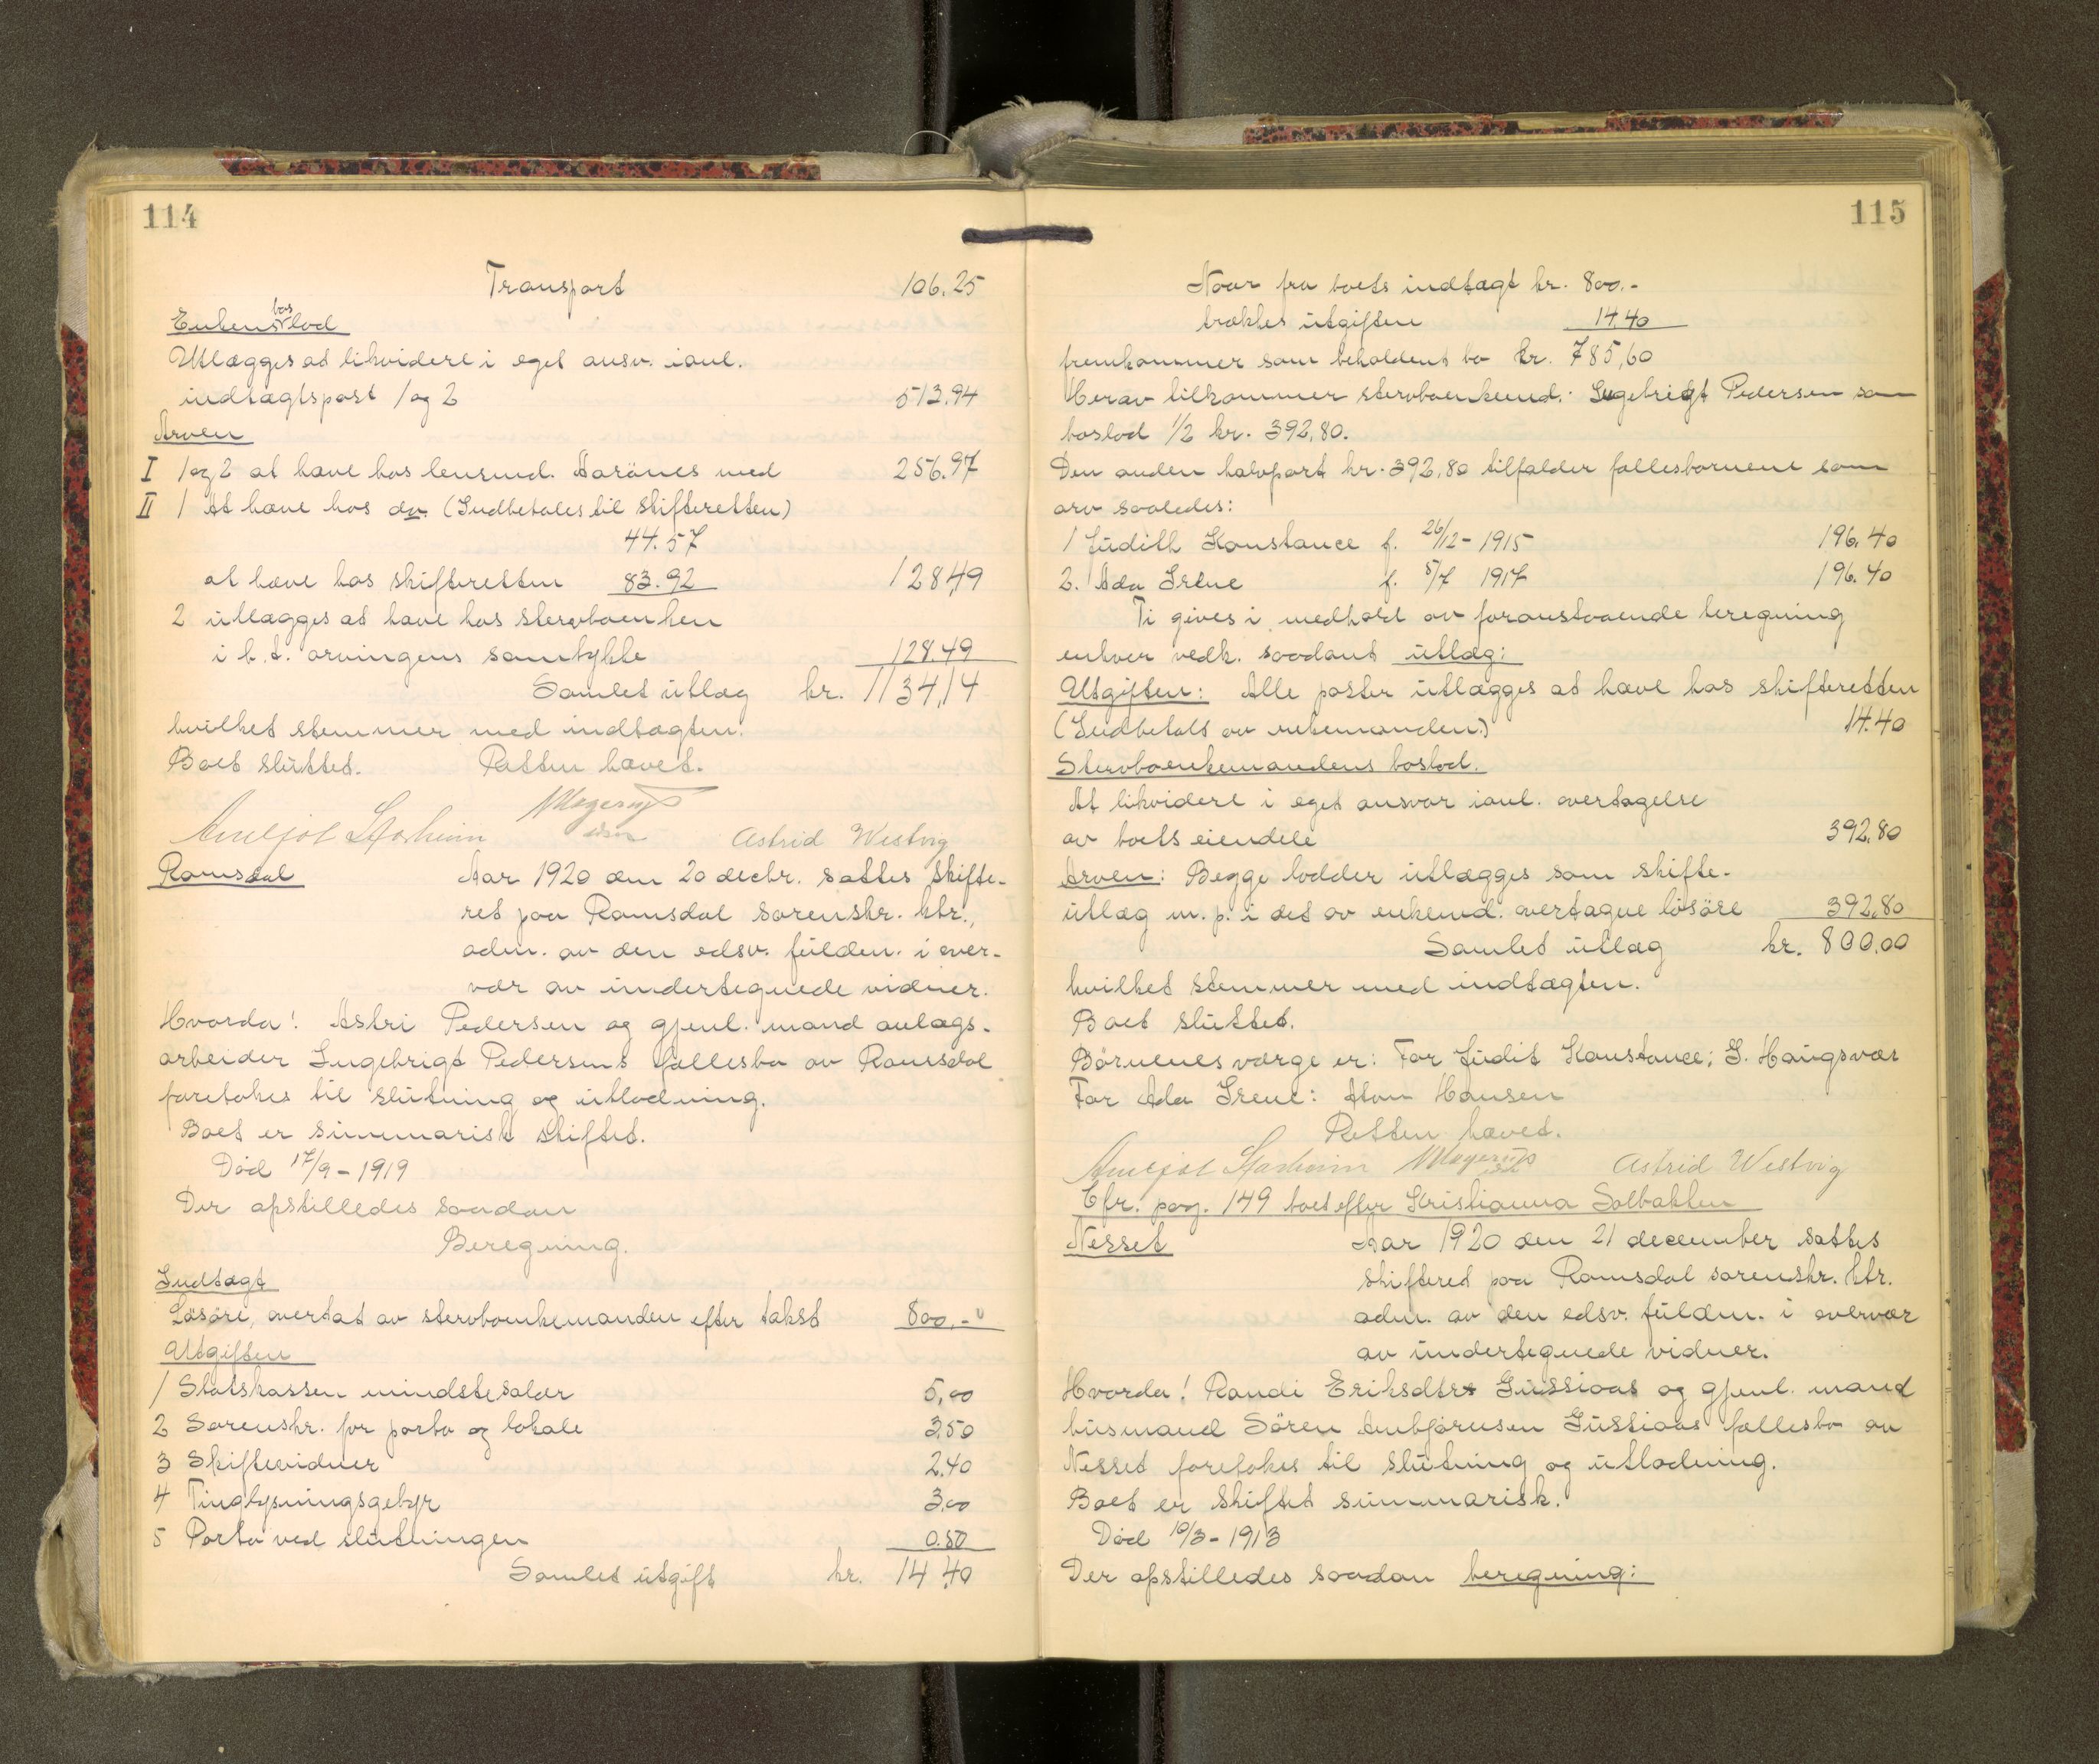 114
Transport 106.25
Enkens boslod
Utlægges at likvidere i eget ansv. ianl.
indtægtspost 1 og 2 513.94
Arven
I 1 og 2 at hæve hos lensmd. Aarönes med 256.97
II 1 At hæve hos do. (Indbetales til skifteretten)
44.57
at hæve hos skifteretten 83.92 128,49
2 utlægges at hæve hos stervboenken
i h.t. arvingens samtykke 128.49
Samlet utlæg kr. 1134,14
hvilket stemmer med indtægten.
Boet sluttet. Retten hævet.
Astrid Westvig
Romsdal Aar 1920 den 20 decbr. sattes skifte-
ret paa Romsdal sorenskr. ktr.,
adm. av den edsv. fuldm. i over-
vær av undertegnede vidner.
Hvorda! Astri Pedersen og gjenl. mand anlægs-
arbeider Ingebrigt Pedersens fællesbo av Romsdal
foretokes til slutning og utlodning.
Boet er summarisk skiftet.
Död 17/9 - 1919
Der opstilledes saadan
Beregning.
Indtægt
Lösöre, overtat av stervboenkemanden efter takst 800.-
Utgiften
1 Statskassen mindstesalær 5,00
2 Sorenskr. for porto og lokale 3.50
3 Skiftevidner 2.40
4 Tinglysningsgebyr 3.00
5 Porto ved slutningen 0.50
Samlet utgift kr. 14,40
115
Naar fra boets indtægt kr. 800.-
trækkes utgiften 14.40
fremkommer som beholdent bo kr. 785,60
Herav tilkommer stervboenkemd. Ingebrigt Pedersen som
boslod 1/2 kr. 392,80.
Den anden halvpart kr. 392,80 tilfalder fællesbarnene som
arv saaledes:
1 Judith Konstance f. 26/12 - 1915 196.40
2. Ada Irene f. 5/7 1917 196.40
Ti gives i medhold av foranstaaende beregning
enhver vedk. saadant utlæg:
Utgiften: Alle poster utlægges at hæve hos skifteretten
(Indbetalt av enkemanden.) 14.40
Stervboenkemandens boslod.
At likvidere i eget ansvar ianl. overtagelse
av boets eiendele 392.80
Arven: Begge lodder utlægges som skifte-
utlæg m. p. i det av enkemd. overtagne lösöre 392,80
Samlet utlæg kr. 800.00
hvilket stemmer med indtægten.
Boet sluttet.
Börnenes værge er: For Judit Konstance; I. Haugsvær
For Ada Irene: Hansen
Retten hævet.
Astrid Westvig
Cfr. pag. 149 boet efter Kristianna Solbakken
Nesset Aar 1920 den 21 december sattes
skifteret paa Romsdal sorenskr. ktr.
adm. av den edsv. fuldm. i overvær
av undertegnede vidner.
Hvorda! Randi Eriksdtr Jussiaas og gjenl. mand
husmand Sören Anbjörnsen Jussiaas fællesbo av
Nesset foretokes til slutning og utlodning.
Boet er skiftet summarisk.
Död 10/3 - 1913
Der opstilledes saadan beregning: